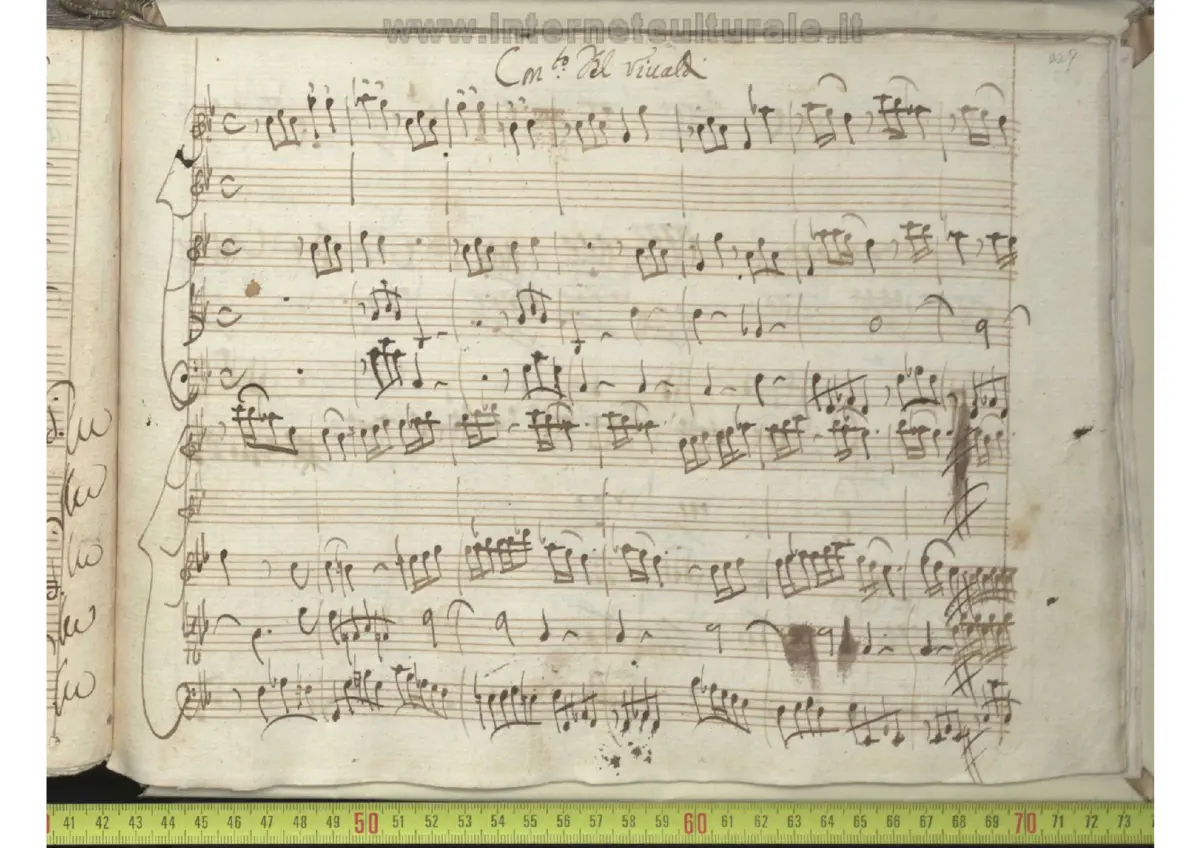 www.internetculturale.it
Con.to Del Viualdi
41 42 43 44 45 46 47 48 49 50 51 52 53 54 55 56 57 58 59 60 61 62 63 64 65 66 67 68 69 70 71 72 73